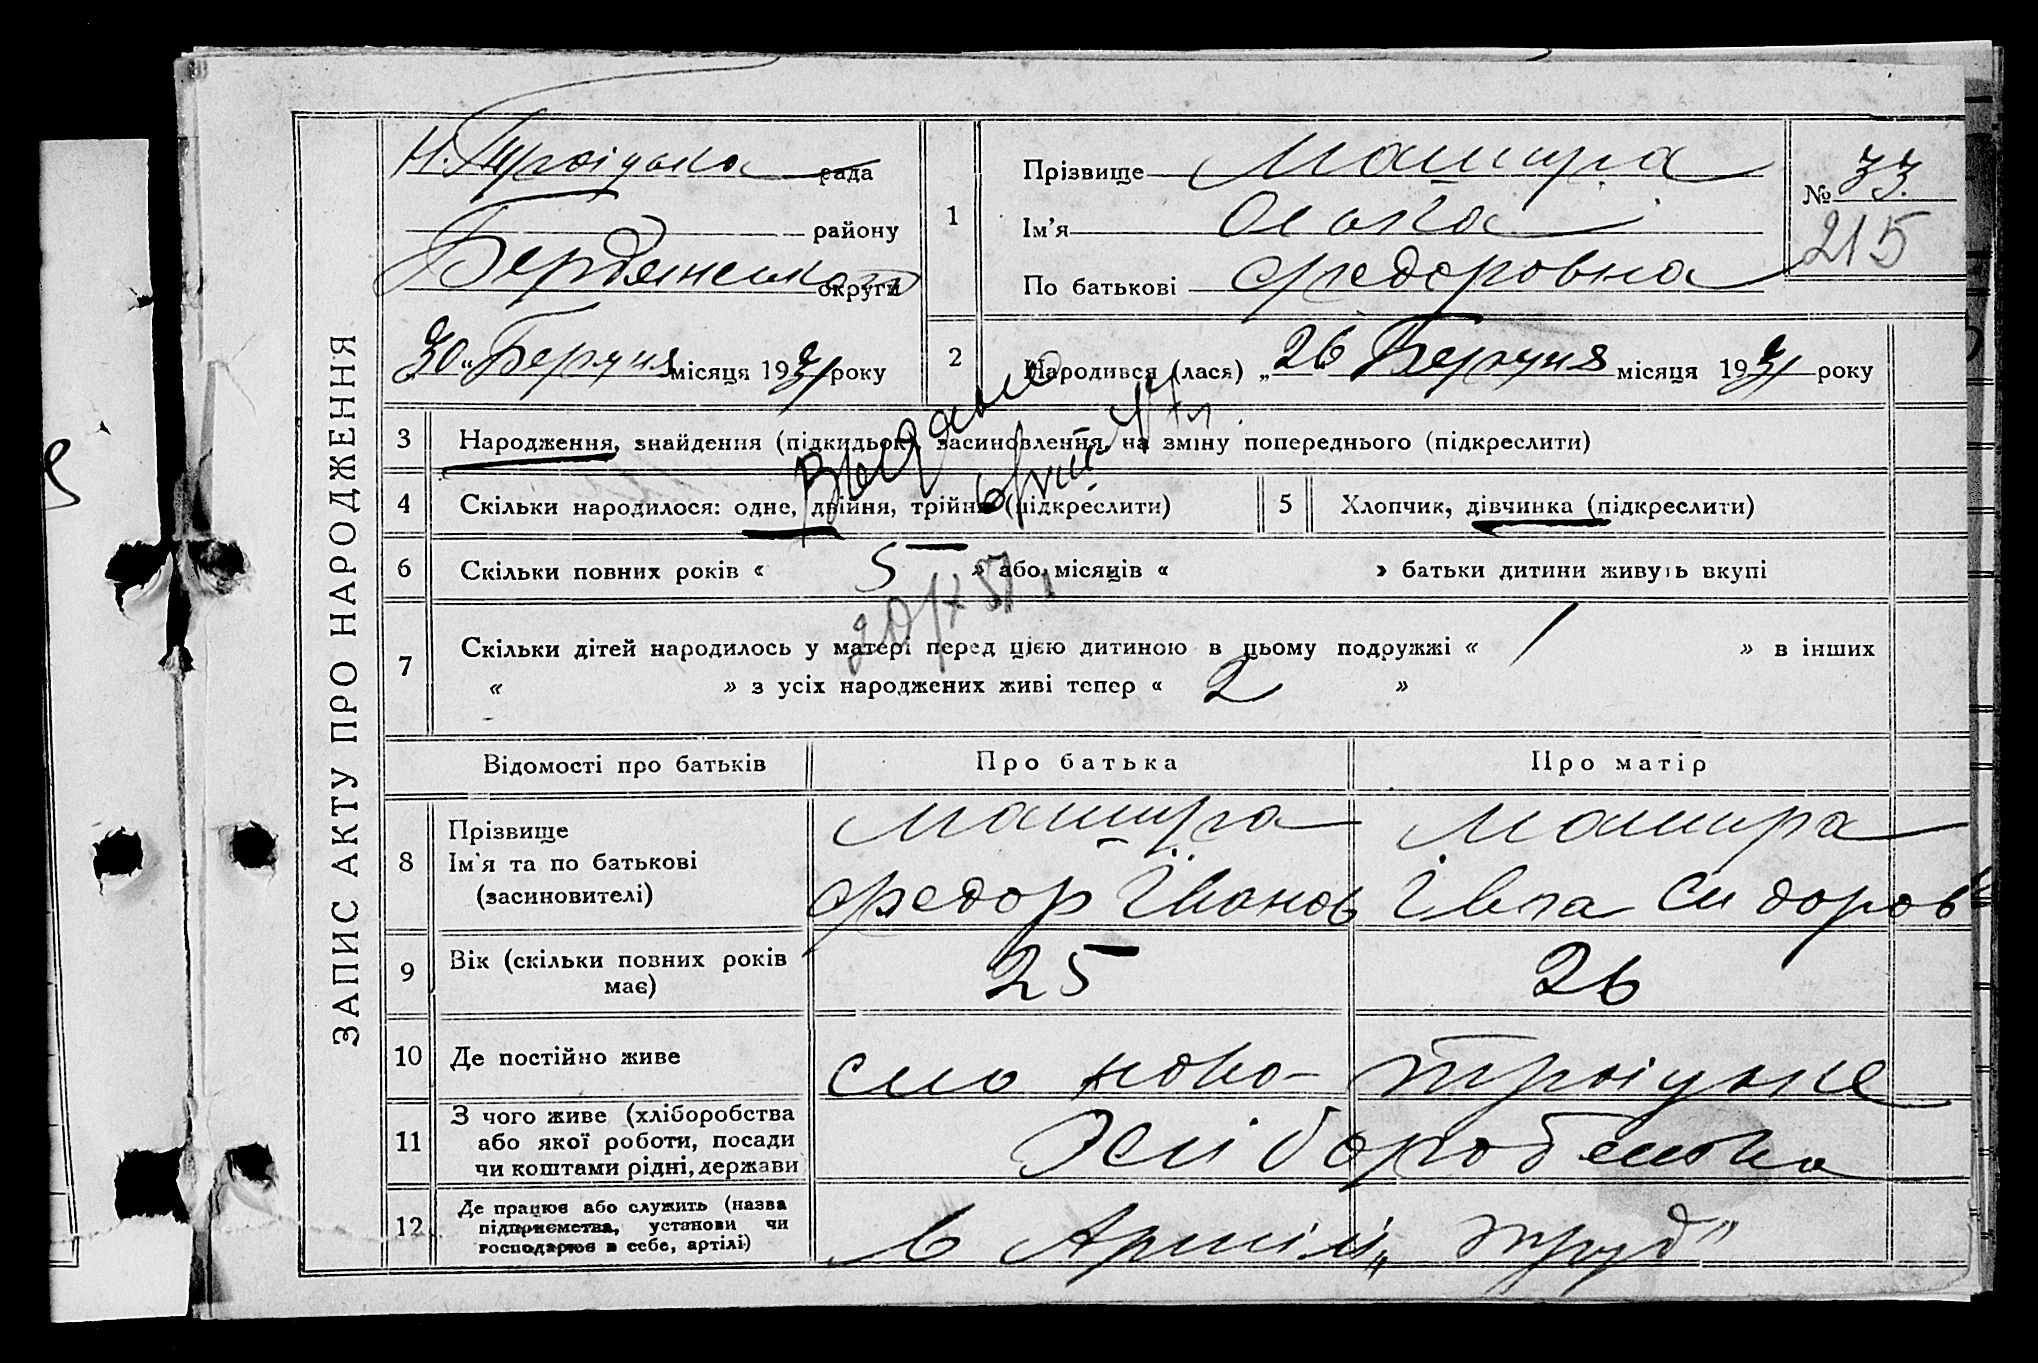 ЗАПИС АКТУ ПРО НАРОДЖЕННЯ
Н. Троіцька рада
району
Бердянська округи
„30“ Березня місяця 1931 року
1
Прізвище Машира
Ім'я Ольга
По батькові Федоровна
№ 33
215
2
Народився (лася) „26“ Березня місяця 1931 року
3 Народження, знайдення (підкидьок), засиновлення, на зміну попереднього (підкреслити)
4 Скільки народилося: одне, двійня, трійня (підкреслити)
5 Хлопчик, дівчинка (підкреслити)
Выдано
6 Скільки повних років « 5 » або місяців « » батьки дитини живуть вкупі
20/X 51
7 Скільки дітей народилось у матері перед цією дитиною в цьому подружжі « 1 » в інших
« » з усіх народжених живі тепер « 2 »
Відомості про батьків Про батька Про матір
8 Прізвище
Ім'я та по батькові
(засиновителі)
Машира Машира
Федор Іванов Івга Сидоров
9 Вік (скільки повних років
має)
25 26
10 Де постійно живе
село ново-троіцьке
11 З чого живе (хліборобства
або якої роботи, посади
чи коштами рідні, держави
Хліборобство
12 Де працює або служить (назва
підприємства, установи чи
господарює в себе, артілі)
в Артілі „Труд"